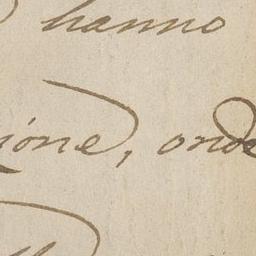 hanno
ione, onde